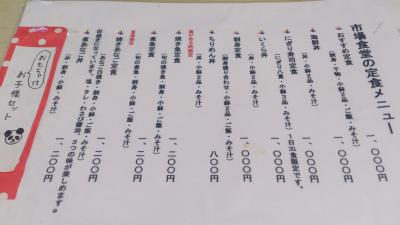 市場食堂の定食メニュー
おすすめ定食 一、〇〇〇円
（刺身・干物・小鉢2品・ご飯・みそ汁）
海鮮丼 一、〇〇〇円
（丼・小鉢2品・みそ汁）
にぎり寿司定食 一、〇〇〇円
（にぎり八貫・小鉢2品・みそ汁）1日20食限定です。
いくら丼 一、〇〇〇円
（丼・小鉢2品・みそ汁）
刺身定食 一、〇〇〇円
（刺身盛り合わせ・小鉢2品・ご飯・みそ汁）
ちりめん丼 八〇〇円
（丼・小鉢・みそ汁）
焼き魚定食 一、二〇〇円
（旬の焼き魚・刺身・小鉢・ご飯・みそ汁）
煮魚定食 一、二〇〇円
（旬の煮魚・刺身・小鉢・ご飯・みそ汁）
焼きあなご定食 一、二〇〇円
（あなご白焼き・刺身・小鉢・ご飯・みそ汁）
煮あなご丼 一、二〇〇円
（丼・刺身・小鉢・みそ汁）
おもちゃ付
お子様セット